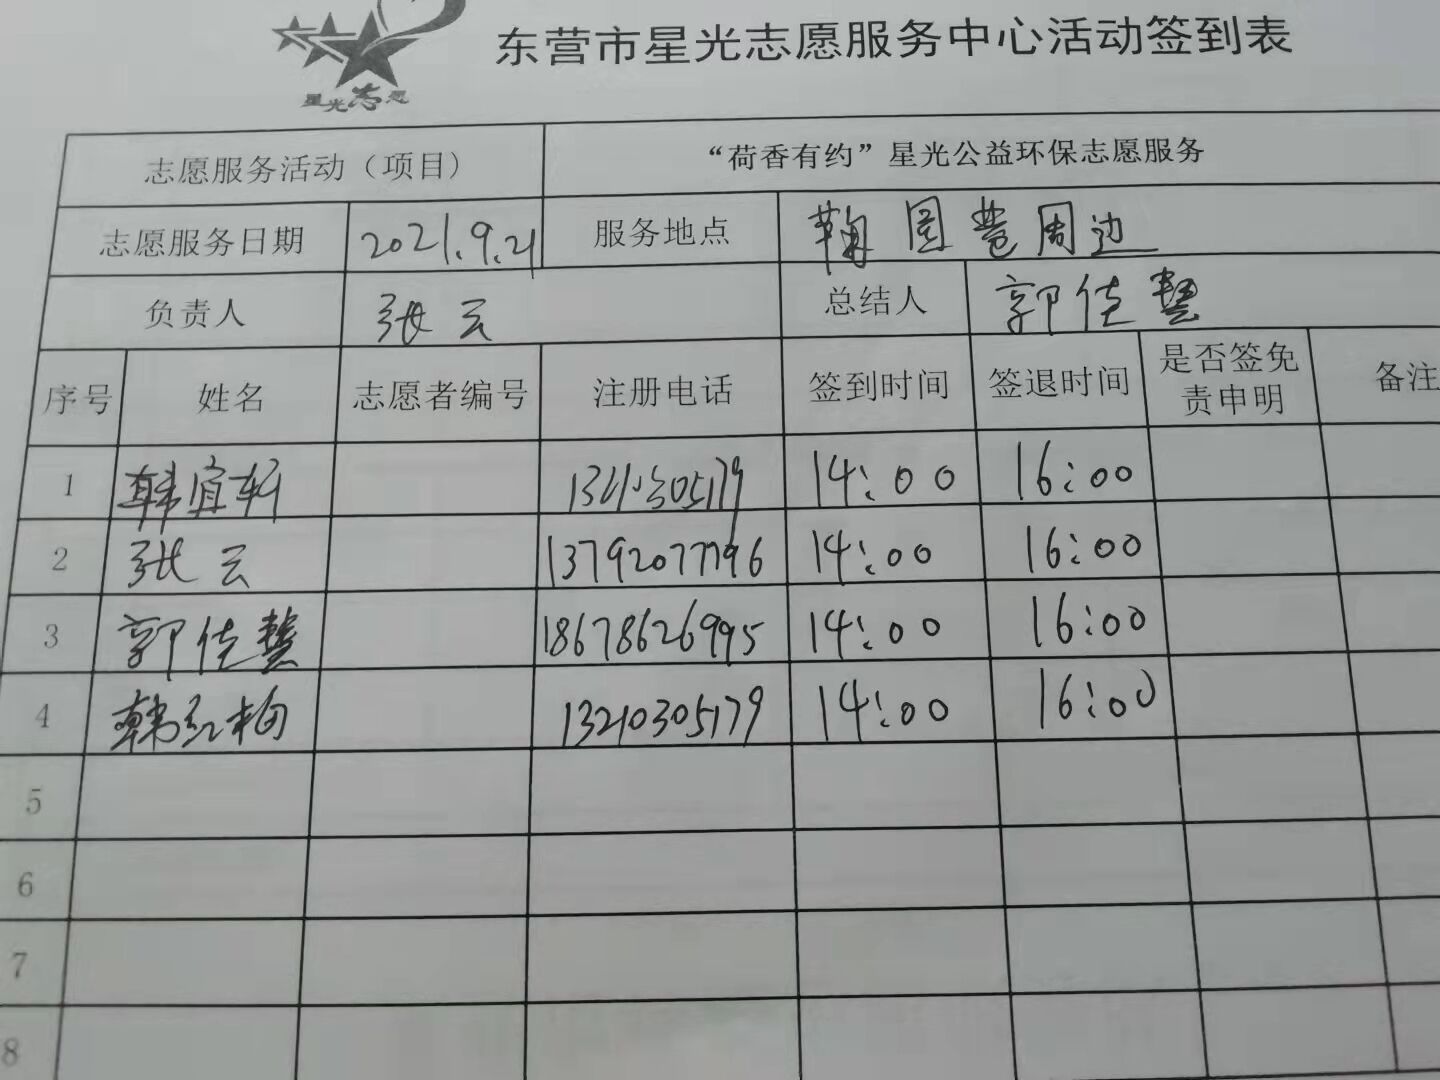 星光志愿
东营市星光志愿服务中心活动签到表
志愿服务活动（项目） “荷香有约”星光公益环保志愿服务
志愿服务日期 2021.9.21 服务地点 周边
负责人 张云 总结人 郭佳慧
序号 姓名 志愿者编号 注册电话 签到时间 签退时间 是否签免责申明 备注
1 韩宜轩 14:00 16:00
2 张云 13792077796 14:00 16:00
3 郭佳慧 18678626995 14:00 16:00
4 韩红梅 13210305179 14:00 16:00
5
6
7
8